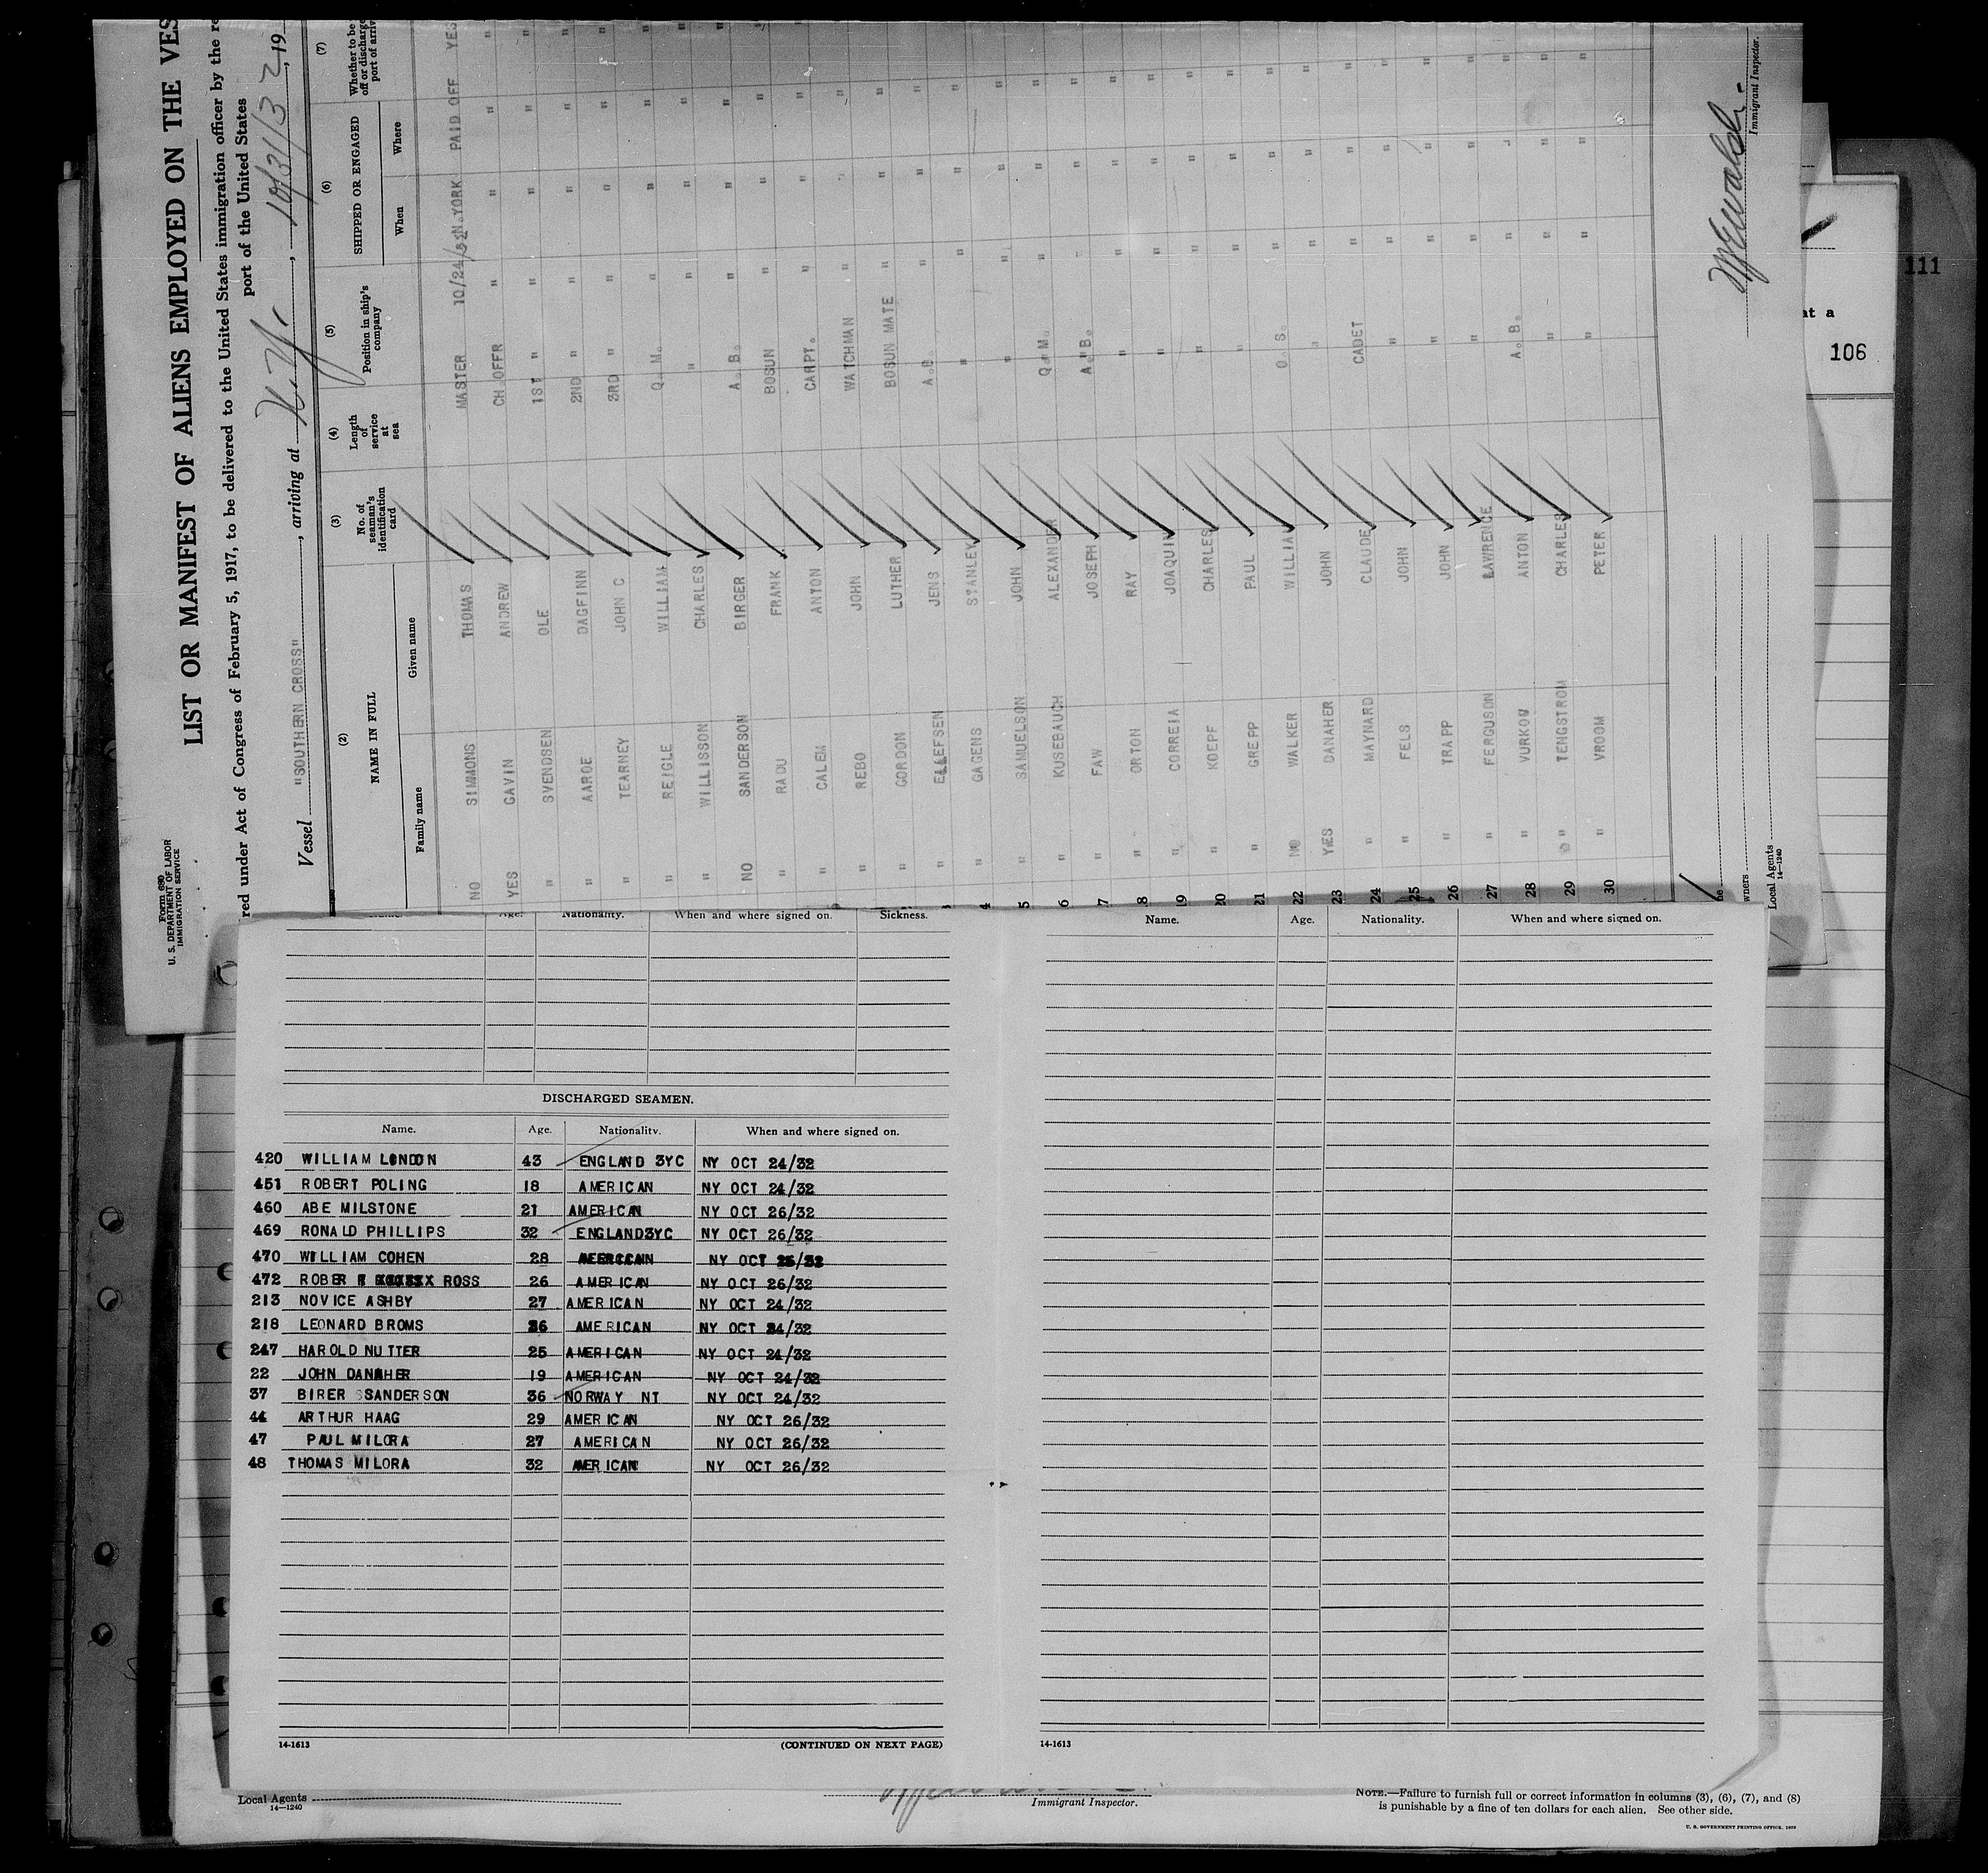 Form 680
U. S. DEPARTMENT OF LABOR
IMMIGRATION SERVICE
LIST OR MANIFEST OF ALIENS EMPLOYED ON THE VES
red under Act of Congress of February 5, 1917, to be delivered to the United States immigration officer by the re
port of the United States
Vessel "SOUTHERN CROSS", arriving at N.Y., 10/31/32, 19
(2) (3) (4) (5) (6) (7)
NAME IN FULL No. of seaman's identification card Length of service at sea Position in ship's company SHIPPED OR ENGAGED Whether to be off or discharge port of arriv
Family name Given name When Where
NO SIMMONS THOMAS MASTER 10/24/32 N.YORK PAID OFF YES
YES GAVIN ANDREW CH OFFR " " " "
" SVENDSEN OLE 1ST " " " " "
" AAROE DAGFINN 2ND " " " " "
" TEARNEY JOHN C 3RD " " " " "
" REIGLE WILLIAM Q.M. " " " "
" WILLISSON CHARLES " " " " "
NO SANDERSON BIRGER A.B. " " " "
" RADU FRANK BOSUN " " " "
" CALEM ANTON CARPT. " " " "
" REBO JOHN WATCHMAN " " " "
" GORDON LUTHER BOSUN MATE " " " "
" ELLEFSEN JENS A.B " " " "
4 " GAGENS STANLEY " " " " "
5 " SAMUELSON JOHN " " " " "
6 " KUSEBAUCH ALEXANDER Q.M. " " " "
7 " FAW JOSEPH A.B. " " " "
18 " ORTON RAY " " " " "
19 " CORREIA JOAQUIN " " " " "
20 " KOEPF CHARLES " " " " "
21 " GREPP PAUL " " " " "
22 NO WALKER WILLIAM O.S. " " " "
23 YES DANAHER JOHN " " " " "
24 " MAYNARD CLAUDE CADET " " " "
25 " FELS JOHN " " " " "
26 " TRAPP JOHN " " " " "
27 " FERGUSON LAWRENCE " " " " "
28 " VURKOV ANTON A.B. " " " "
29 " TENGSTROM CHARLES " " " " "
30 " VROOM PETER " " " " "
Immigrant Inspector.
wners
Local Agents
14—1240
111
at a
106
Name. Age. Nationality. When and where signed on. Sickness.
DISCHARGED SEAMEN.
Name. Age. Nationality. When and where signed on.
420 WILLIAM LONDON 43 ENGLAND 3YC NY OCT 24/32
451 ROBERT POLING 18 AMERICAN NY OCT 24/32
460 ABE MILSTONE 21 AMERICAN NY OCT 26/32
469 RONALD PHILLIPS 32 ENGLAND3YC NY OCT 26/32
470 WILLIAM COHEN 28 AMERICAN NY OCT 26/32
472 ROBER T ROSS 26 AMERICAN NY OCT 26/32
213 NOVICE ASHBY 27 AMERICAN NY OCT 24/32
218 LEONARD BROMS 26 AMERICAN NY OCT 24/32
247 HAROLD NUTTER 25 AMERICAN NY OCT 24/32
22 JOHN DANAHER 19 AMERICAN NY OCT 24/32
37 BIRER SANDERSON 36 NORWAY NI NY OCT 24/32
44 ARTHUR HAAG 29 AMERICAN NY OCT 26/32
47 PAUL MILORA 27 AMERICAN NY OCT 26/32
48 THOMAS MILORA 32 AMERICAN NY OCT 26/32
14-1613 (CONTINUED ON NEXT PAGE)
Name. Age. Nationality. When and where signed on.
14-1613
Local Agents
14—1240
Immigrant Inspector.
NOTE.—Failure to furnish full or correct information in columns (3), (6), (7), and (8)
is punishable by a fine of ten dollars for each alien. See other side.
U. S. GOVERNMENT PRINTING OFFICE